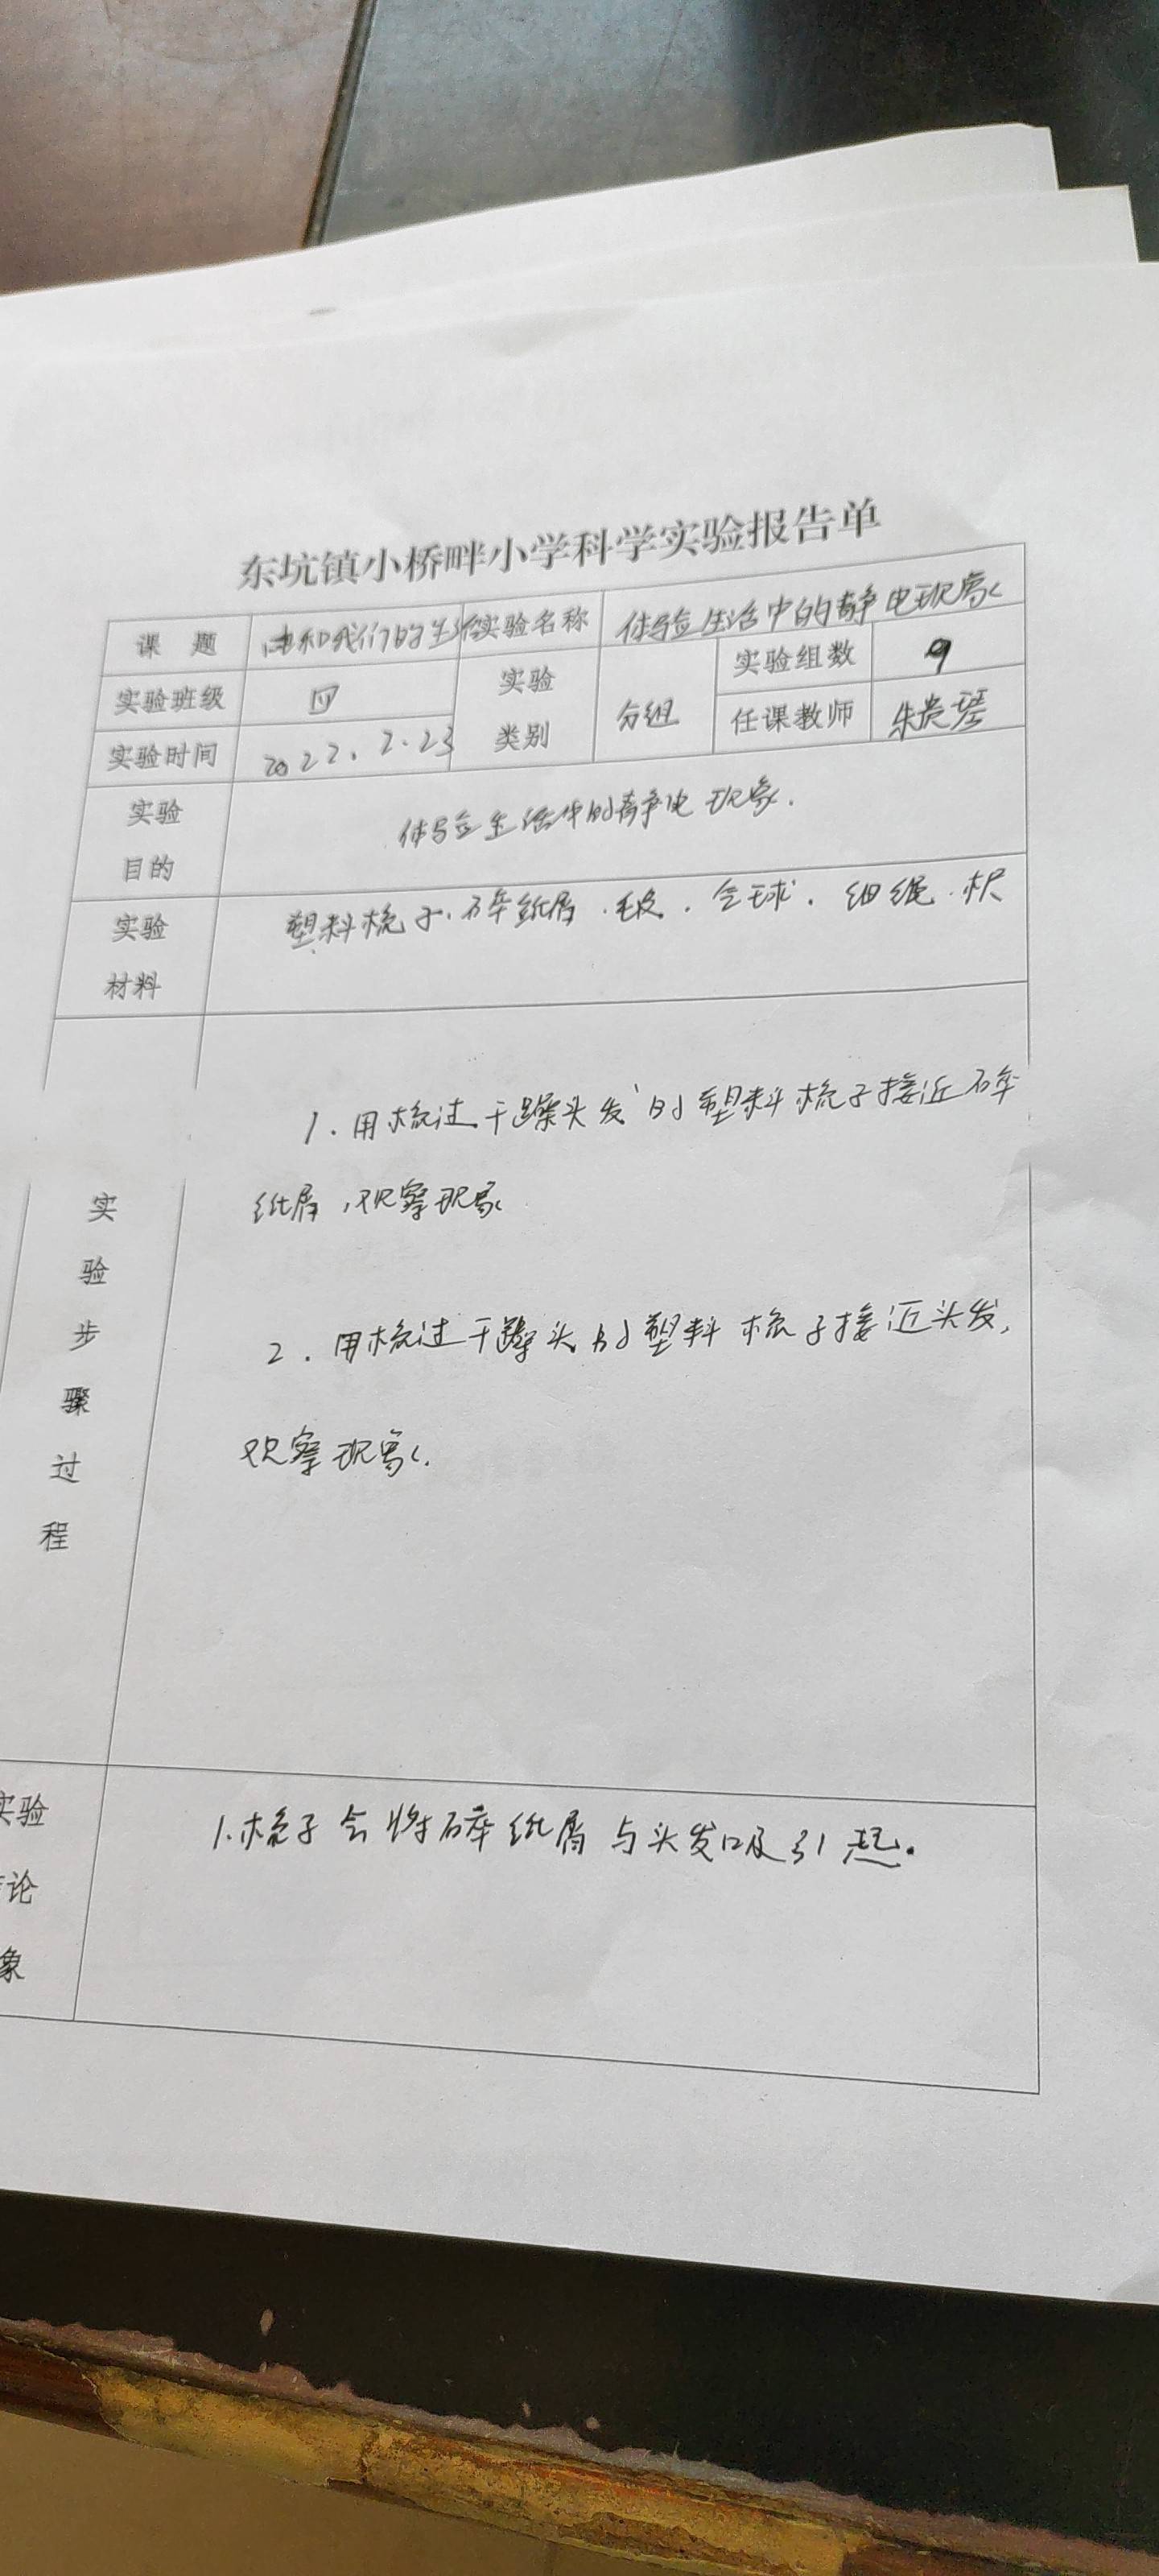 东坑镇小桥畔小学科学实验报告单
课 题 电和我们的生活 实验名称 体验生活中的静电现象
实验班级 四 实验类别 分组 实验组数 9
实验时间 2022.2.23 任课教师 朱贵琴
实验目的 体验生活中的静电现象.
实验材料 塑料梳子.碎纸屑.毛皮.仝球.细绳.
实验步骤过程
1.用梳过干躁头发的塑料梳子接近碎
纸屑,观察现象
2.用梳过干躁头的塑料梳子接近头发,
观察现象.
实验
论
象
1.梳子会将碎纸屑与头发吸引起.